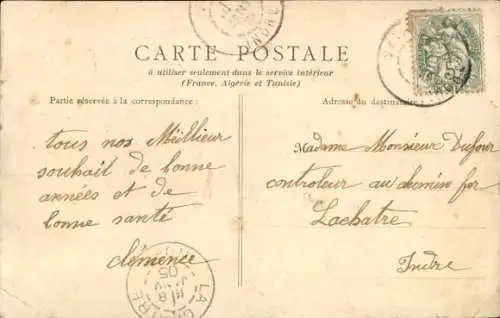 NORD
CARTE POSTALE
à utiliser seulement dans le service intérieur
(France, Algérie et Tunisie)
Partie réservée à la correspondance :
Adresse du destinataire :
tous nos Meillieur
souhait de bonne
années et de
bonne santé
clémence
Madame Monsieur Dufour
controleur au chemin fer
Lachatre
Indre
LA
8
05